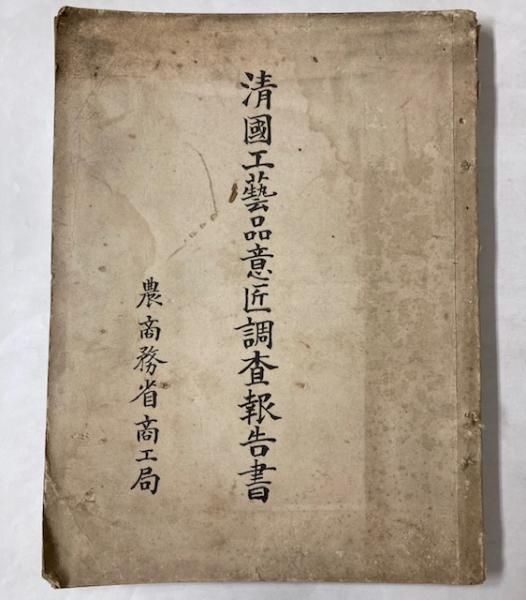 清國工藝品意匠調查報告書
農商務省商工局